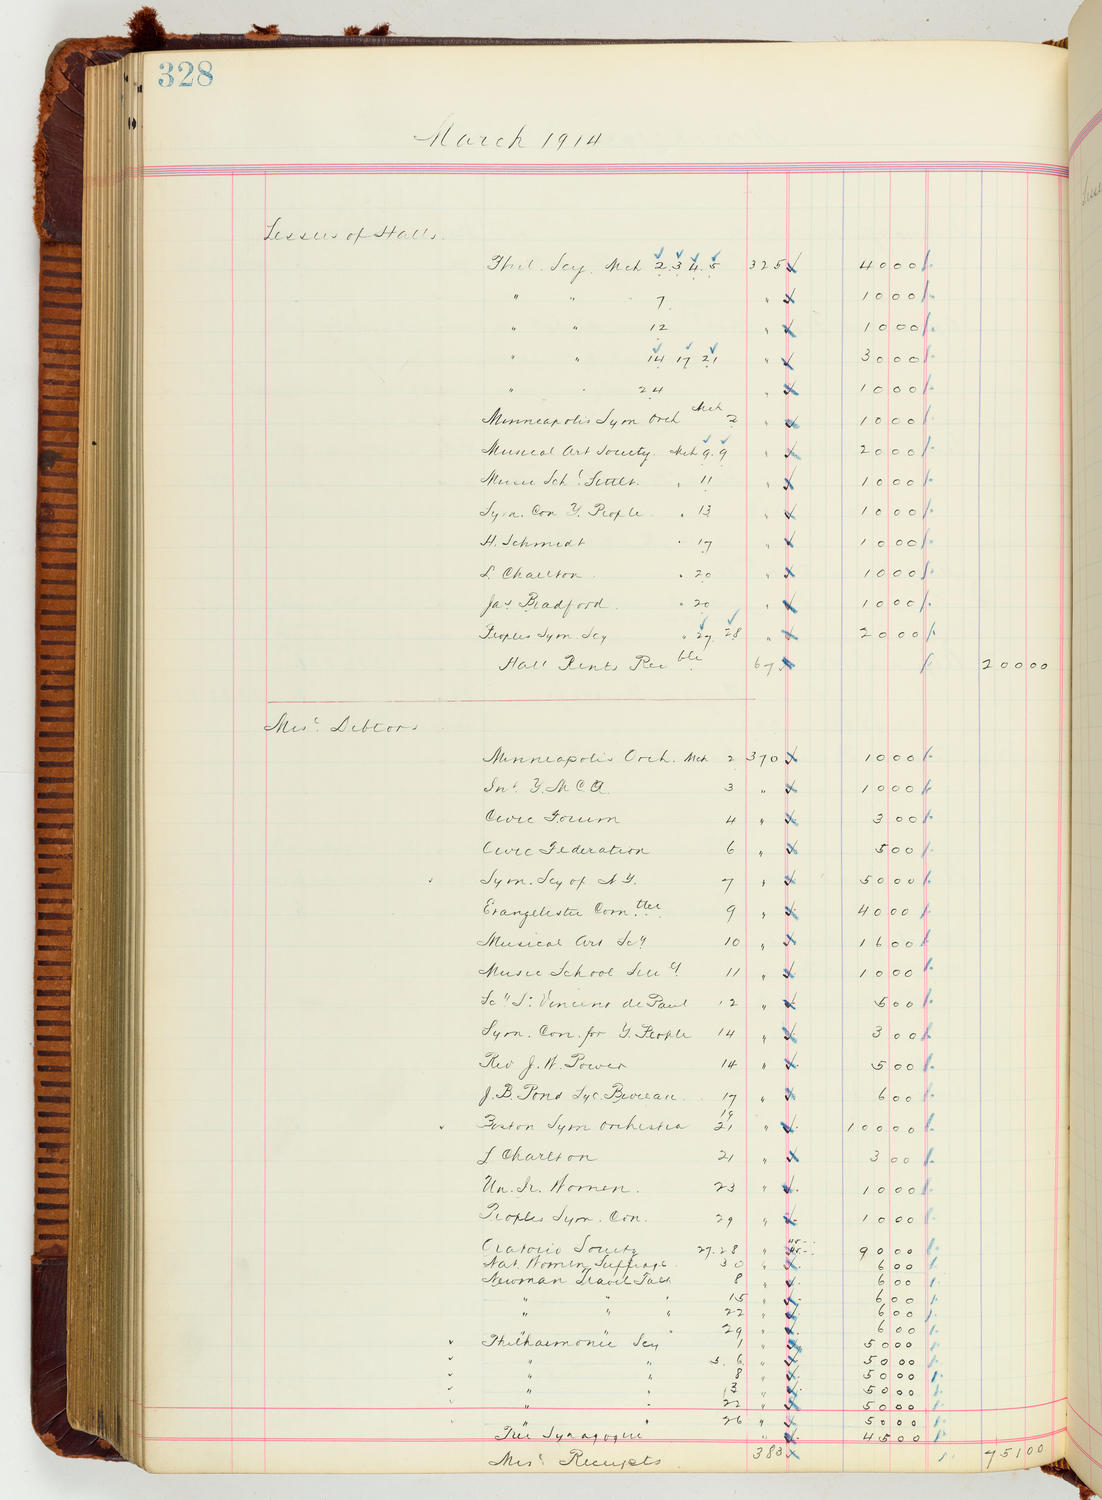 328
March 1914
Lessees of Halls.
Phil. Scy. Mch 2.3 4. 5 325 4000
" " 7 " 1000
" " 12 " 1000
" " 14 17 21 " 3000
" " 24 " 1000
Minneapolis Sym Orch Mch 2 " 1000
Musical Art Society. Mch 9. 9 " 2000
Music Schl Settlt. " 11 " 1000
Sym. Con Y. People " 13 " 1000
H. Schmidt " 17 " 1000
L Charlton " 20 " 1000
Jas Bradford. " 20 " 1000
Peoples Sym. Scy " 27. 28 " 2000
Hall Rents Recble 67 20000
Misc. Debtors
Minneapolis Orch. Mch 2 370 1000
Int. Y.M.C.A. 3 " 1000
Civic Forum 4 " 300
Civic Federation 6 " 500
Sym. Scy of N.Y. 7 " 5000
Evangelistic Comttee 9 " 4000
Musical Art Scy 10 " 1600
Music School 11 " 1000
Scy St Vincent de Paul 12 " 500
Sym. Con. for Y. People 14 " 300
Rev J. W. Power 14 " 500
J. B. Pond Lyc. Bureau. 17 " 600
19
Boston Sym Orchestra 21 " 10000
L Charlton 21 " 300
Un. Women. 23 " 1000
Peoples Sym. Con. 29 " 1000
Oratorio Society 27.28 " 45- 45- 9000
Nat. Women Suffrage 30 " 600
Newman Travel Talk 8 " 600
" " " 15 " 600
" " " 22 " 600
" " 29 " 600
Philharmonic Scy 1 " 5000
" " 5. 6. " 5000
" " 8 " 5000
" " 13 " 5000
" " 22 " 5000
" " 26 " 5000
Free Synagogue " 4500
Misc. Receipts 383 75100